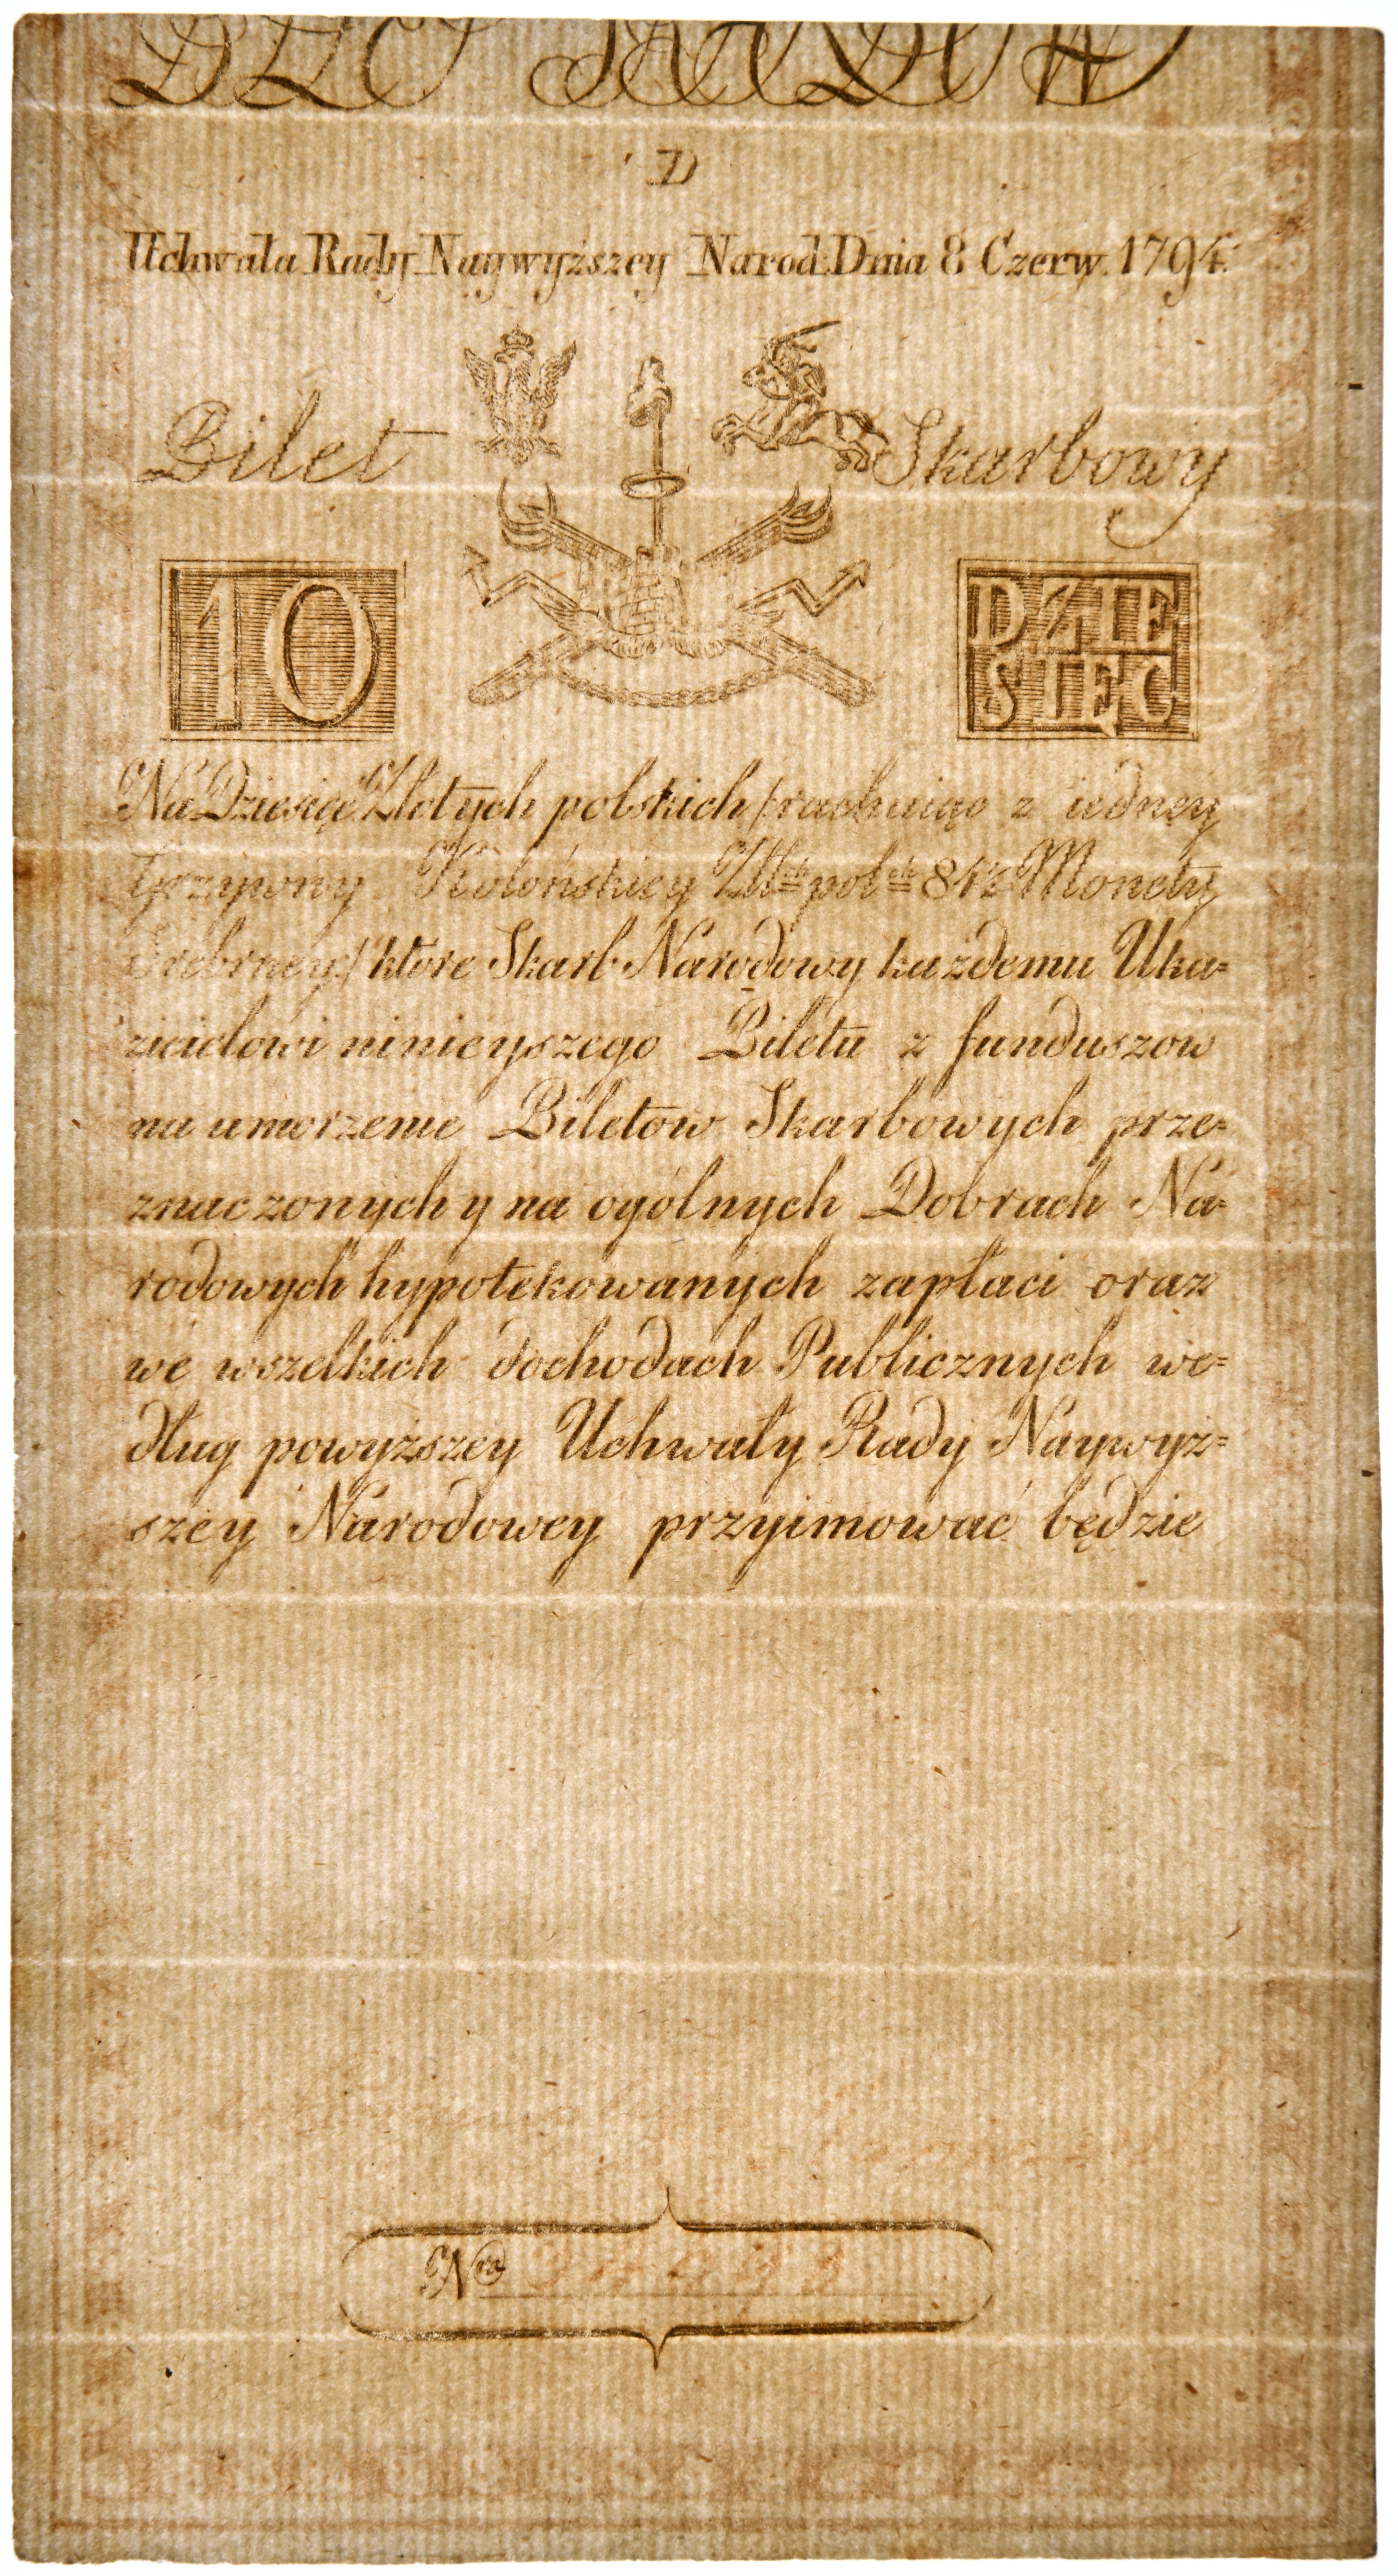 D
Uchwała Rady Naywyższey Narod: Dnia 8 Czerw. 1794.
Bilet Skarbowy
10 DZIE
SIĘC
Na Dziesięć Złotych polskich /rachuiąc z iedney
Grzywny Kolońskiey Złł<sup>ch</sup> pol<sup>ch</sup> 84½ Monety
Srebrney/ ktore Skarb Narodowy każdemu Uka=
zicielowi ninieyszego Biletu z funduszow
na umorzenie Biletow Skarbowych prze=
znaczonych y na ogólnych Dobrach Na=
rodowych hypotekowanych zapłaci oraz
we wszelkich dochodach Publicznych we=
dług powyższey Uchwały Rady Naywyż=
szey Narodowey przyimować będzie
N<sup>ro</sup>